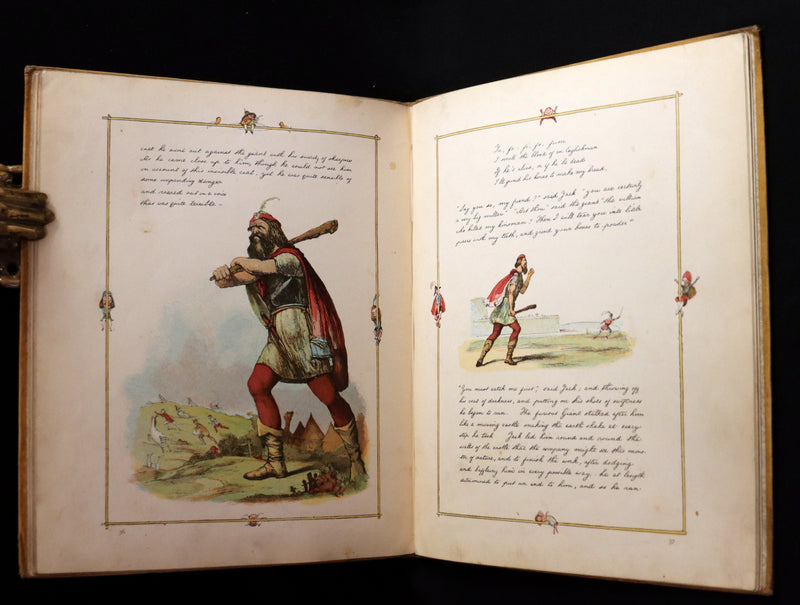 cast he went out against the giant with his sword of sharpness
As he came close up to him, though he could not see him
on account of this invisible coat, yet he was quite sensible of
some impending danger
and roared out in a voice
that was quite terrible –
36
Fe, fa - fi, fo, fum
I smell the blood of an Englishman
If he's alive, or if he be dead
I'll grind his bones to make my bread.
"Say you so, my friend?" said Jack "you are certainly
a big miller." "Art thou" said the giant "the villain
who killed my kinsman? Then I will tear you with
my teeth, and grind your bones to powder"
"You must catch me first," said Jack; and throwing off
his coat of darkness, and putting on his shoes of swiftness
he began to run. The furious Giant stalked after him
like a moving castle making the earth shake at every
step he took Jack led him round and round the
walls of the castle that the company might see this mons-
ter of nature, and to finish the work, after dodging
and baffling him in every possible way. he at length
determined to put an end to him, and as he ran
37